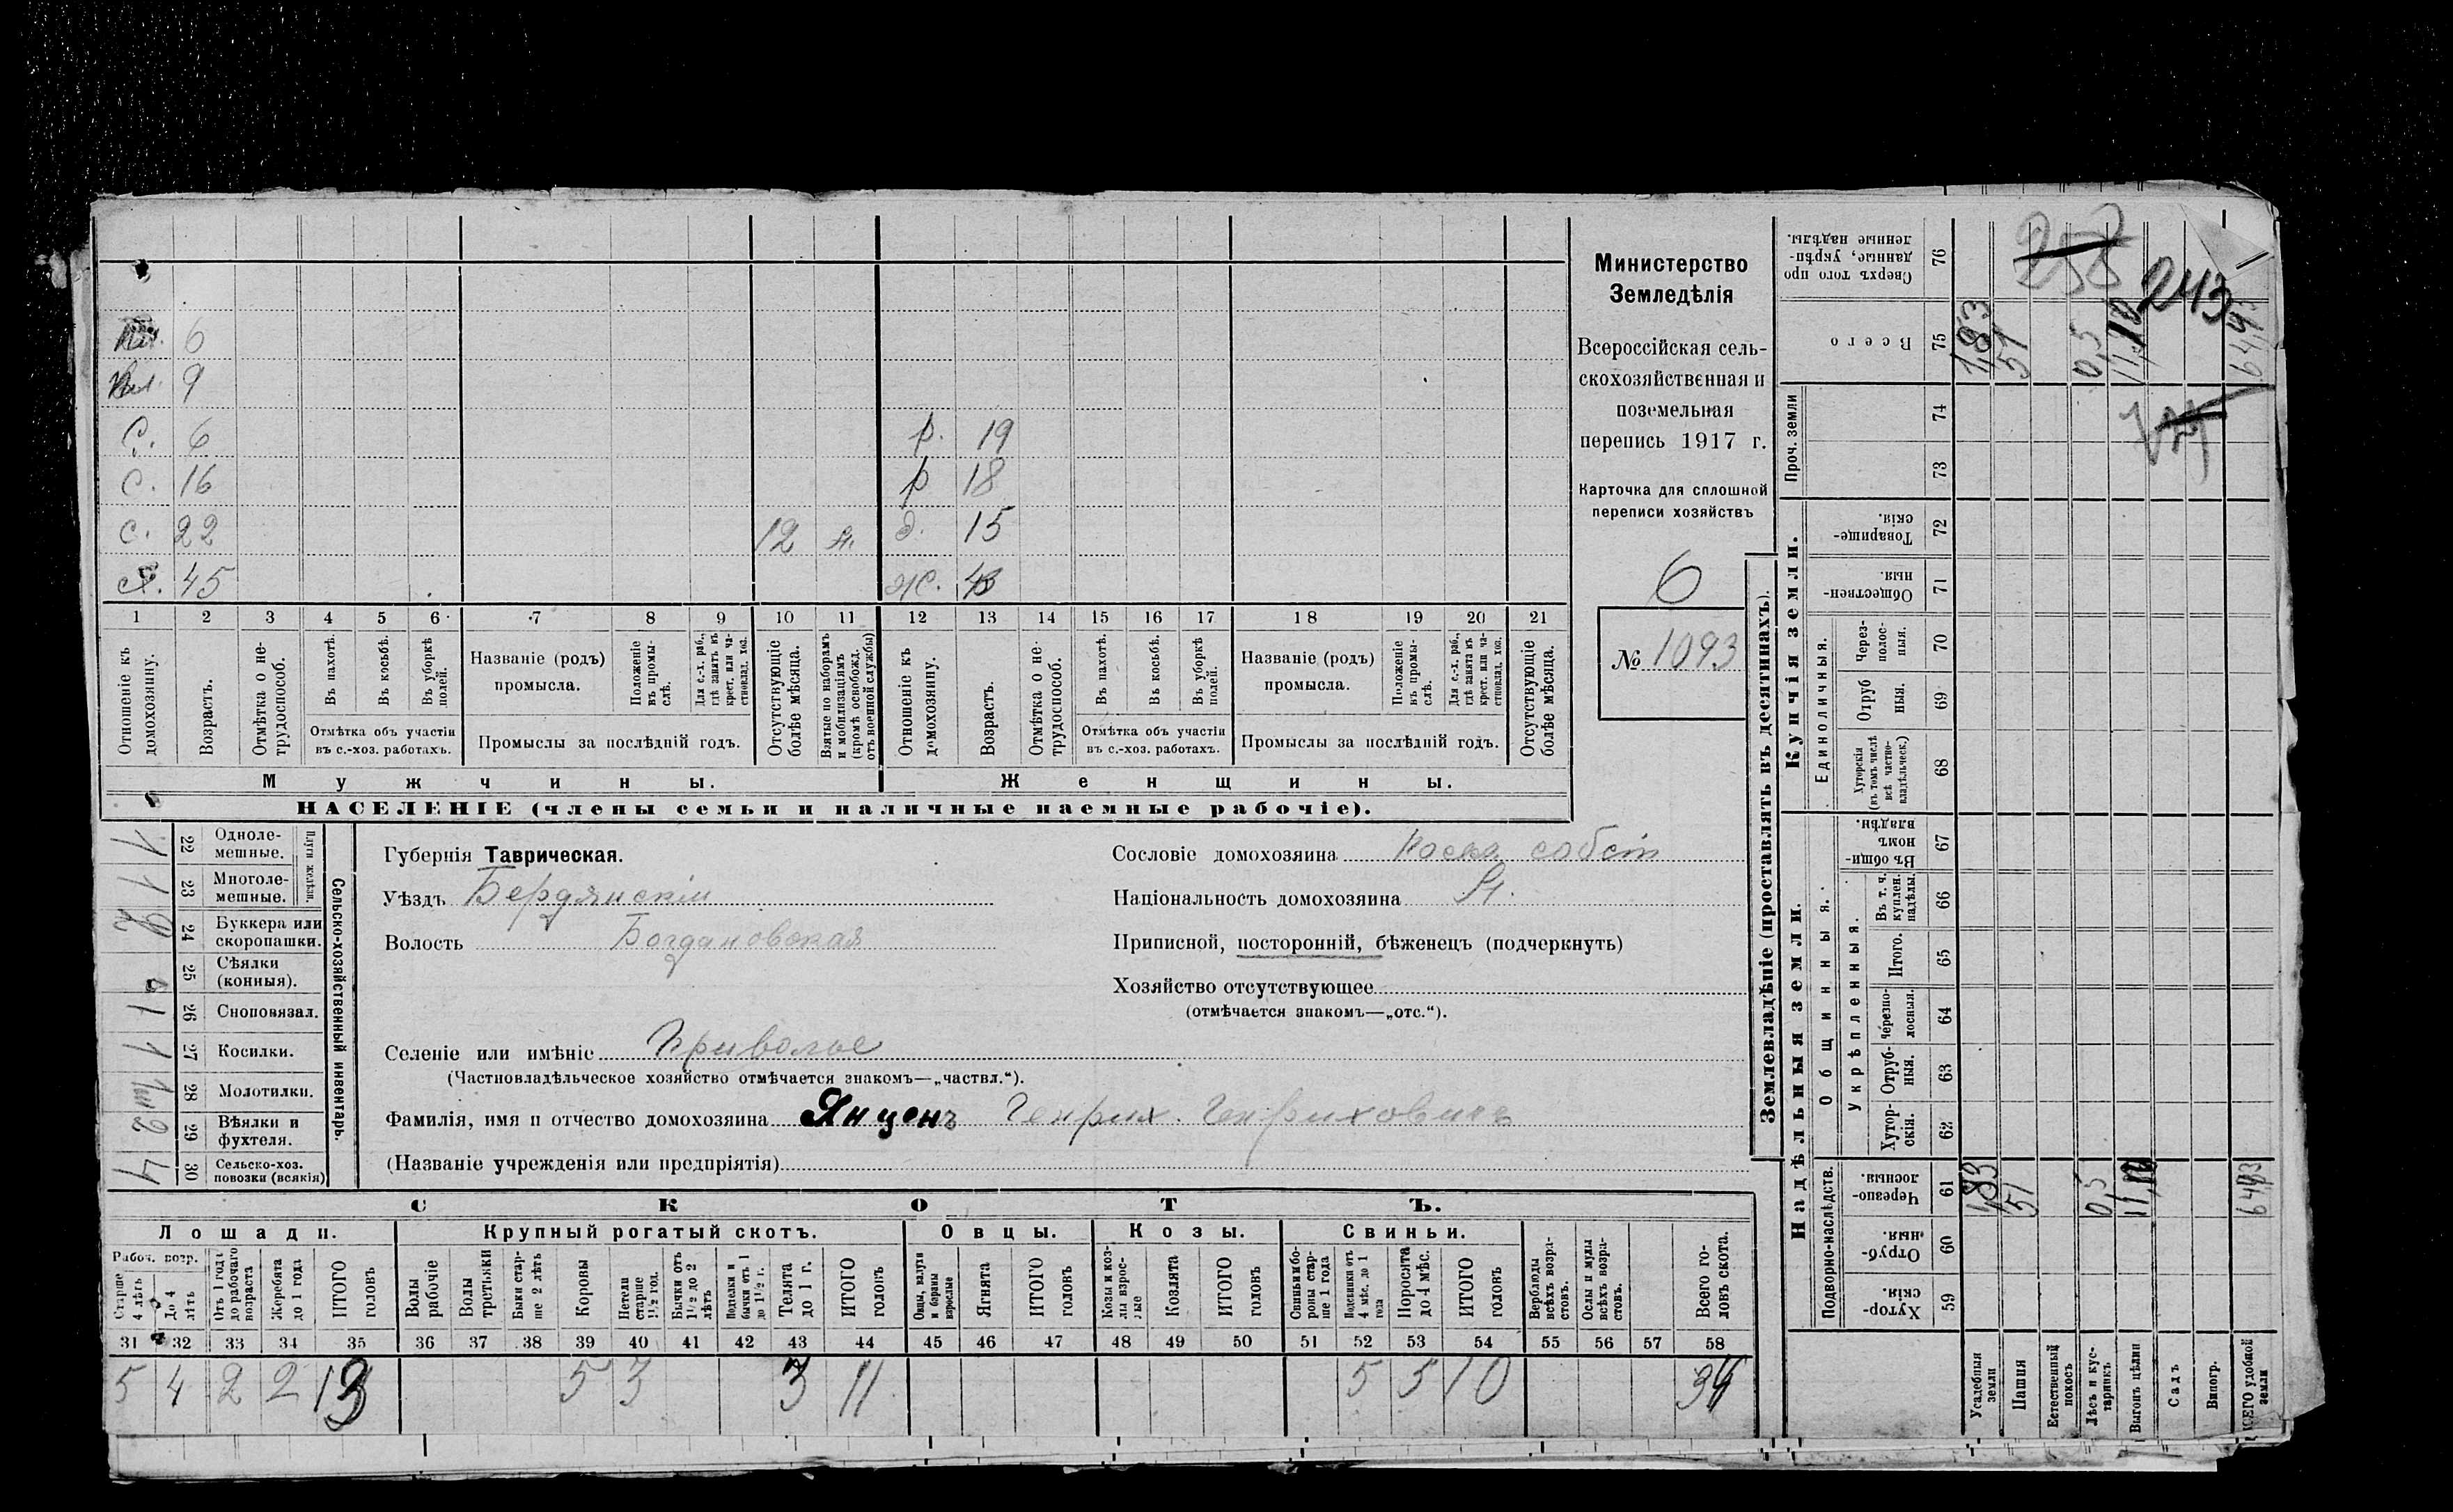 Министерство
Земледѣлія
Всероссійская сель-
скохозяйственная и
поземельная
перепись 1917 г.
Карточка для сплошной
переписи хозяйствъ
6
№ 1093
6
9
С. 6
р. 19
С. 16
р 18
С. 22
12
д. 15
45
ж.
1 2 3 4 5 6 7 8 9 10 11 12 13 14 15 16 17 18 19 20 21
Отношеніе къ домохозяину.
Возрастъ.
Отмѣтка о не-трудоспособ.
Въ пахотѣ.
Въ косьбѣ.
Въ уборкѣ полей.
Отмѣтка объ участіи
въ с.-хоз. работахъ.
Названіе (родъ)
промысла.
Положеніе въ промы-слѣ.
Для с.-х. раб., гдѣ занятъ въ крест. или ча-стновлад. хоз.
Промыслы за послѣдній годъ.
Отсутствующіе болѣе мѣсяца.
Взятые по наборамъ и мобилизаціямъ (кромѣ освобожд. отъ военной службы)
Отношеніе къ домохозяину.
Возрастъ.
Отмѣтка о не-трудоспособ.
Въ пахотѣ.
Въ косьбѣ.
Въ уборкѣ полей.
Отмѣтка объ участіи
въ с.-хоз. работахъ.
Названіе (родъ)
промысла.
Положеніе въ промы-слѣ.
Для с.-х. раб., гдѣ занята въ крест. или ча-стновлад. хоз.
Промыслы за послѣдній годъ.
Отсутствующіе болѣе мѣсяца.
Мужчины.
Женщины.
НАСЕЛЕНІЕ (члены семьи и наличные наемные рабочіе).
Сельско-хозяйственный инвентарь.
Плуги желѣзн.
1 22 Одноле-мешные.
1 23 Многоле-мешные.
2 24 Буккера или скоропашки.
25 Сѣялки (конныя).
1 26 Сноповязал.
1 27 Косилки.
28 Молотилки.
2 29 Вѣялки и фухтеля.
4 30 Сельско-хоз. повозки (всякія)
Губернія Таврическая.
Уѣздъ Бердянскій
Волость Богдановская
Сословіе домохозяина собств
Національность домохозяина
Приписной, посторонній, бѣженецъ (подчеркнуть)
Хозяйство отсутствующее
(отмѣчается знакомъ—„отс.“).
Селеніе или имѣніе Приволье
(Частновладѣльческое хозяйство отмѣчается знакомъ—„частвл.“).
Фамилія, имя и отчество домохозяина Янценъ Генрих. Генриховичъ
(Названіе учрежденія или предпріятія)
СКОТЪ.
Лошади.
Крупный рогатый скотъ.
Овцы.
Козы.
Свиньи.
Рабоч. возр.
Старше 4 лѣтъ
До 4 лѣтъ
Отъ 1 года до рабочаго возраста
Жеребята до 1 года
ИТОГО головъ
Волы рабочіе
Волы третьяки
Быки стар-ше 2 лѣтъ
Коровы
Нетели старше 1½ год.
Бычки отъ 1½ до 2 лѣтъ
Подтелки и бычки отъ 1 до 1½ г.
Телята до 1 г.
ИТОГО головъ
Овцы, валухи и бараны взрослые
Ягнята
ИТОГО головъ
Козы и коз-лы взрос-лые
Козлята
ИТОГО головъ
Свиньи и бо-роны стар-ше 1 года
Подсвинки отъ 4 мѣс. до 1 года
Поросята до 4 мѣс.
ИТОГО головъ
Верблюды всѣхъ возра-стовъ.
Ослы и мулы всѣхъ возра-стовъ.
Всего го-ловъ скота.
31 32 33 34 35 36 37 38 39 40 41 42 43 44 45 46 47 48 49 50 51 52 53 54 55 56 57 58
5 4 2 2 13 5 3 3 11 5 5 10 34
Землевладѣніе (проставлять въ десятинахъ).
Надѣльныя земли.
Купчія земли.
Проч. земли
Подворно-наслѣдств.
Общинныя.
Укрѣпленныя.
Единоличныя.
Хутор-скія. 59
Отруб-ныя. 60
Черезпо-лосныя. 61
Хутор-скія. 62
Отруб-ныя. 63
Черезпо-лосныя. 64
Итого. 65
Въ т. ч. куплен. надѣлы. 66
Въ общи-номъ владѣн. 67
Хуторскія (въ томъ числѣ всѣ частно-владѣльческ.) 68
Отруб ныя. 69
Через-полос-ныя. 70
Обществен-ныя. 71
Товарище-скія. 72
73
74
Всего 75
Сверхъ того про данные, укрѣп-ленные надѣлы. 76
Усадебныя земли 1,83 1,83
Пашня 51 51
Естественный покосъ
Лѣсъ и кус-тарникъ 0,5 0,5
Выгонъ цѣлин
Садъ
Виногр.
ВСЕГО удобной земли
258
243